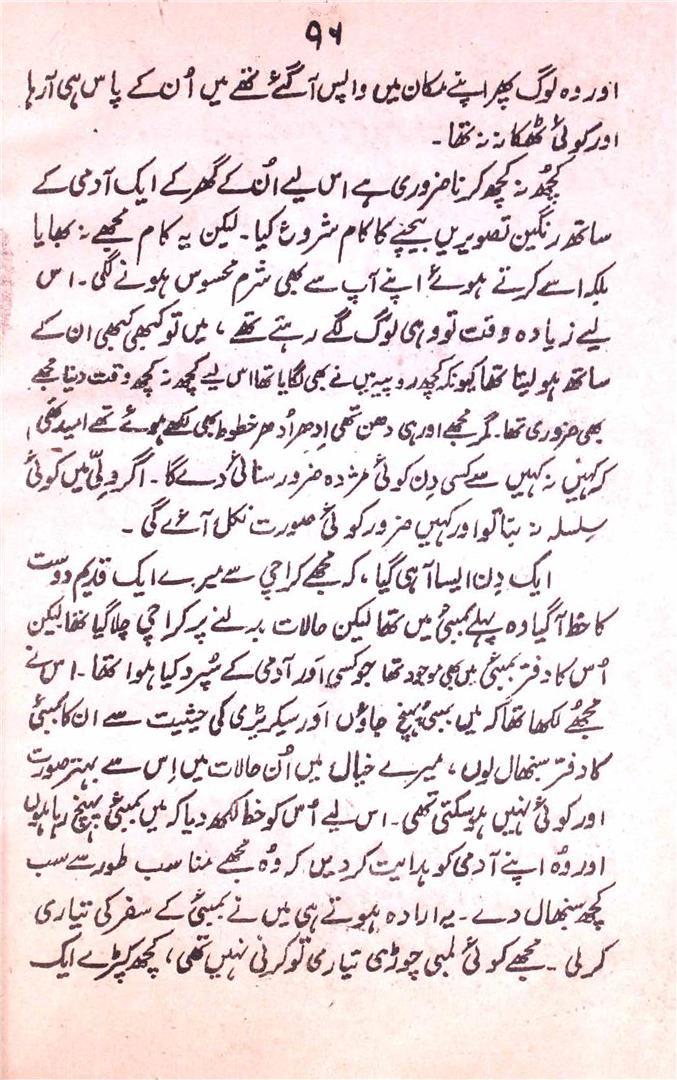 ۹۶
اور وہ لوگ پھر اپنے مکان میں واپس آ گئے تھے میں اُن کے پاس ہی آ رہا
اور کوئی ٹھکانہ نہ تھا۔
کچھ نہ کچھ کرنا ضروری ہے اس لیے اُن کے گھر کے ایک آدمی کے
ساتھ رنگین تصویریں بیچنے کا کام شروع کیا۔ لیکن یہ کام مجھے نہ بھایا
بلکہ اسے کرتے ہوئے اپنے آپ سے بھی شرم محسوس ہونے لگی۔ اس
لیے زیادہ وقت تو وہی لوگ لگے رہتے تھے، میں تو کبھی کبھی ان کے
ساتھ ہو لیتا تھا کیونکہ کچھ روپیہ میں نے بھی لگایا تھا اس لیے کچھ نہ کچھ وقت دینا مجھے
بھی ضروری تھا۔ مگر مجھے اور ہی دھن تھی اِدھر اُدھر خطوط بھی لکھے ہوئے تھے امید تھی
کہ کہیں نہ کہیں سے کسی دِن کوئی مژدہ ضرور سنائی دے گا۔ اگر دِلّی میں کوئی
سِلسلہ نہ بنا تو اور کہیں ضرور کوئی صورت نکل آئے گی۔
ایک دِن ایسا آ ہی گیا، کہ مجھے کراچی سے میرے ایک قدیم دوست
کا خط آ گیا وہ پہلے بمبئی میں تھا لیکن حالات بدلنے پر کراچی چلا گیا تھا لیکن
اُس کا دفتر بمبئی میں بھی موجود تھا جو کسی اَور آدمی کے سُپرد کیا ہوا تھا۔ اس نے
مجھے لکھا تھا کہ میں بمبئی پہنچ جاؤں اَور سیکریٹری کی حیثیت سے ان کا بمبئی
کا دفتر سنبھال لوں، میرے خیال میں اُن حالات میں اِس سے بہتر صورت
اور کوئی نہیں ہو سکتی تھی۔ اس لیے اُس کو خط لکھ دیا کہ میں بمبئی پہنچ رہا ہوں
اور وُہ اپنے آدمی کو ہدایت کر دیں کہ وُہ مجھے مناسب طور سے سب
کچھ سنبھال دے۔ یہ ارادہ ہوتے ہی میں نے بمبئی کے سفر کی تیاری
کر لی۔ مجھے کوئی لمبی چوڑی تیاری تو کرنی نہیں تھی، کچھ کپڑے ایک